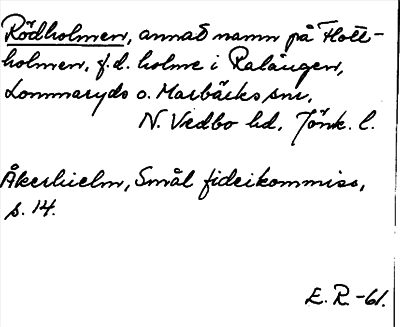 Rödholmen, annat namn på Flott-
holmen, f.d. holme i Ralången,
Lommaryds o. Marbäcks snr,
N. Vedbo hd, Jönk. l.
Åkerhielm, Smål fideikommiss,
s. 14.
E.R.-61.